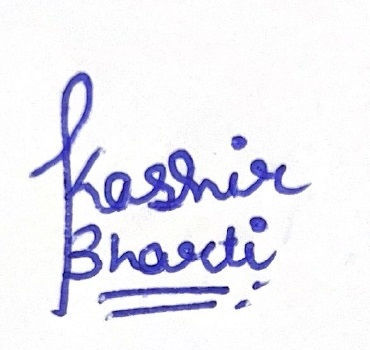 Kashir
Bharti